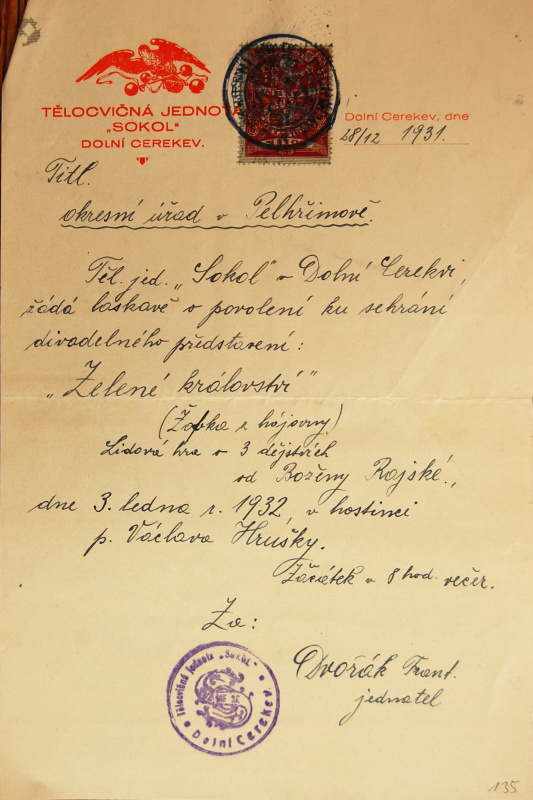 TĚLOCVIČNÁ JEDNOTA
„SOKOL“
DOLNÍ CEREKEV.
Dolní Cerekev, dne
28/12 1931.
Titl.
okresní úřad v Pelhřimově.
Těl. jed. „Sokol“ v Dolní Cerekvi,
žádá laskavě o povolení ku sehrání
divadelného představení:
„Zelené království“
(Žabka z hájovny)
Lidová hra o 3 dějstvích
od Boženy Rajské,
dne 3. ledna r. 1932, v hostinci
p. Václava Hrušky.
Začátek v 8 hod. večer.
Za:
Dvořák Frant.
jednatel
Tělocvičná jednota „SOKOL“
Dolní Cerekev
135